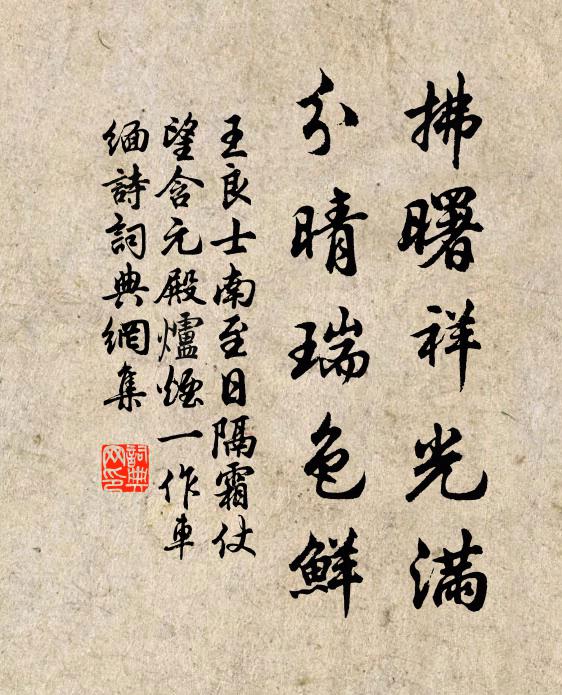 拂曙祥光滿
分晴瑞色鮮
王良士南至日隔霜仗
望含元殿爐煙一作車
緬詩詞典網集
詞典網印